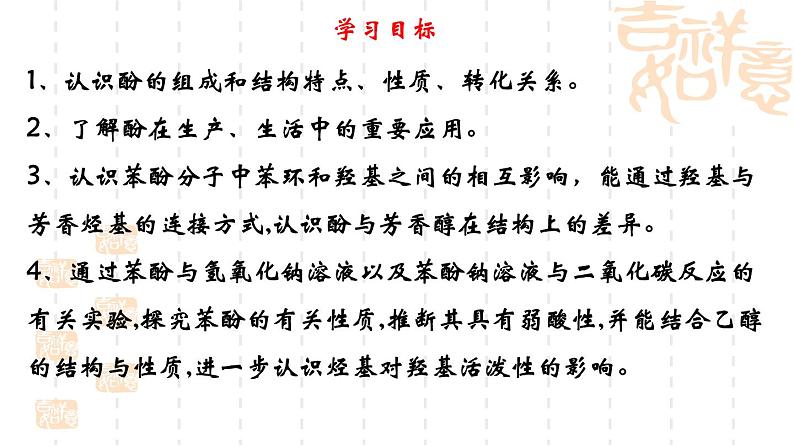 学习目标
1、认识酚的组成和结构特点、性质、转化关系。
2、了解酚在生产、生活中的重要应用。
3、认识苯酚分子中苯环和羟基之间的相互影响，能通过羟基与
芳香烃基的连接方式,认识酚与芳香醇在结构上的差异。
4、通过苯酚与氢氧化钠溶液以及苯酚钠溶液与二氧化碳反应的
有关实验,探究苯酚的有关性质,推断其具有弱酸性,并能结合乙醇
的结构与性质,进一步认识烃基对羟基活泼性的影响。
吉祥如意